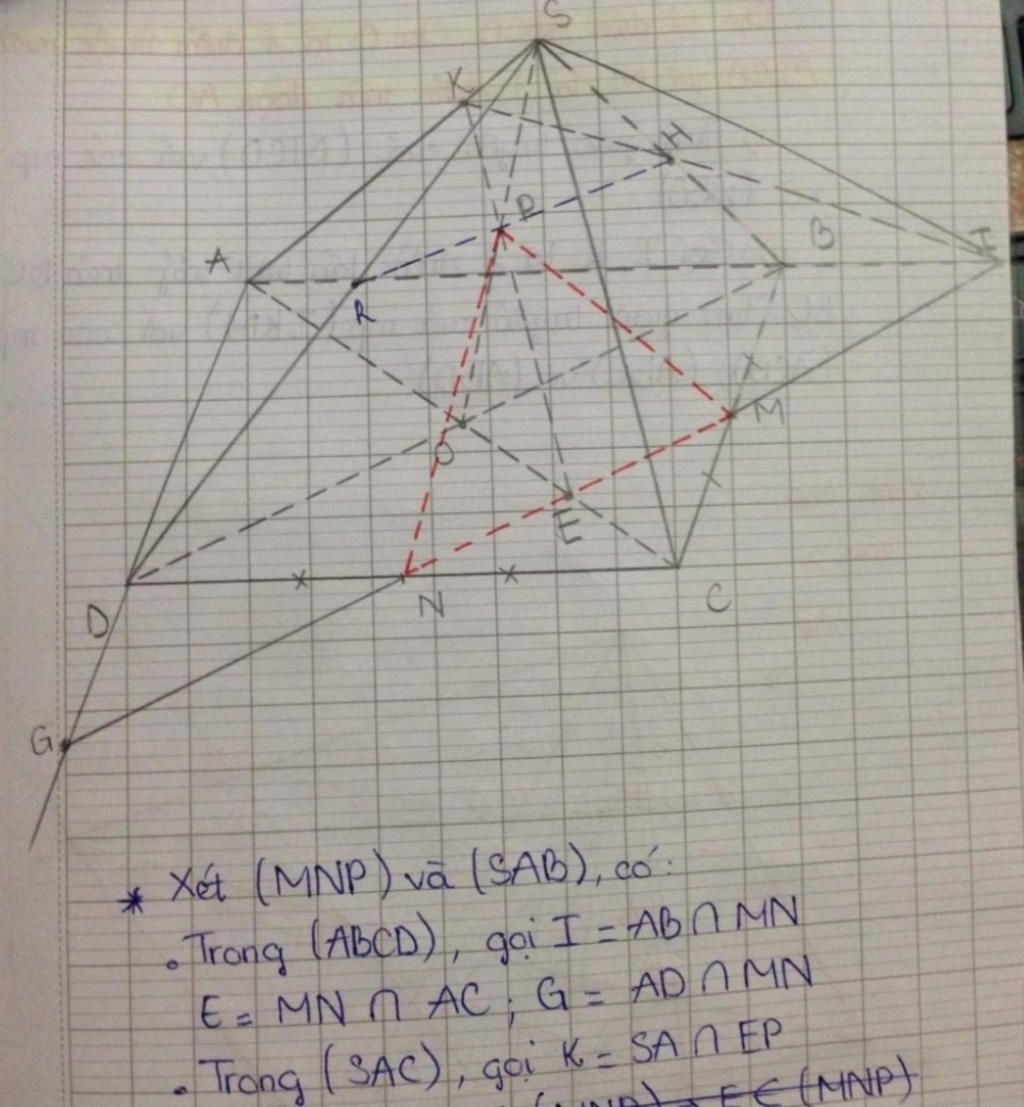 S
K
H
P
A
B
I
R
O
M
E
D
N
C
G
* Xét (MNP) và (SAB), có:
. Trong (ABCD), gọi I = AB ∩ MN
E = MN ∩ AC ; G = AD ∩ MN
. Trong (SAC), gọi K = SA ∩ EP
E ∈ (MNP)